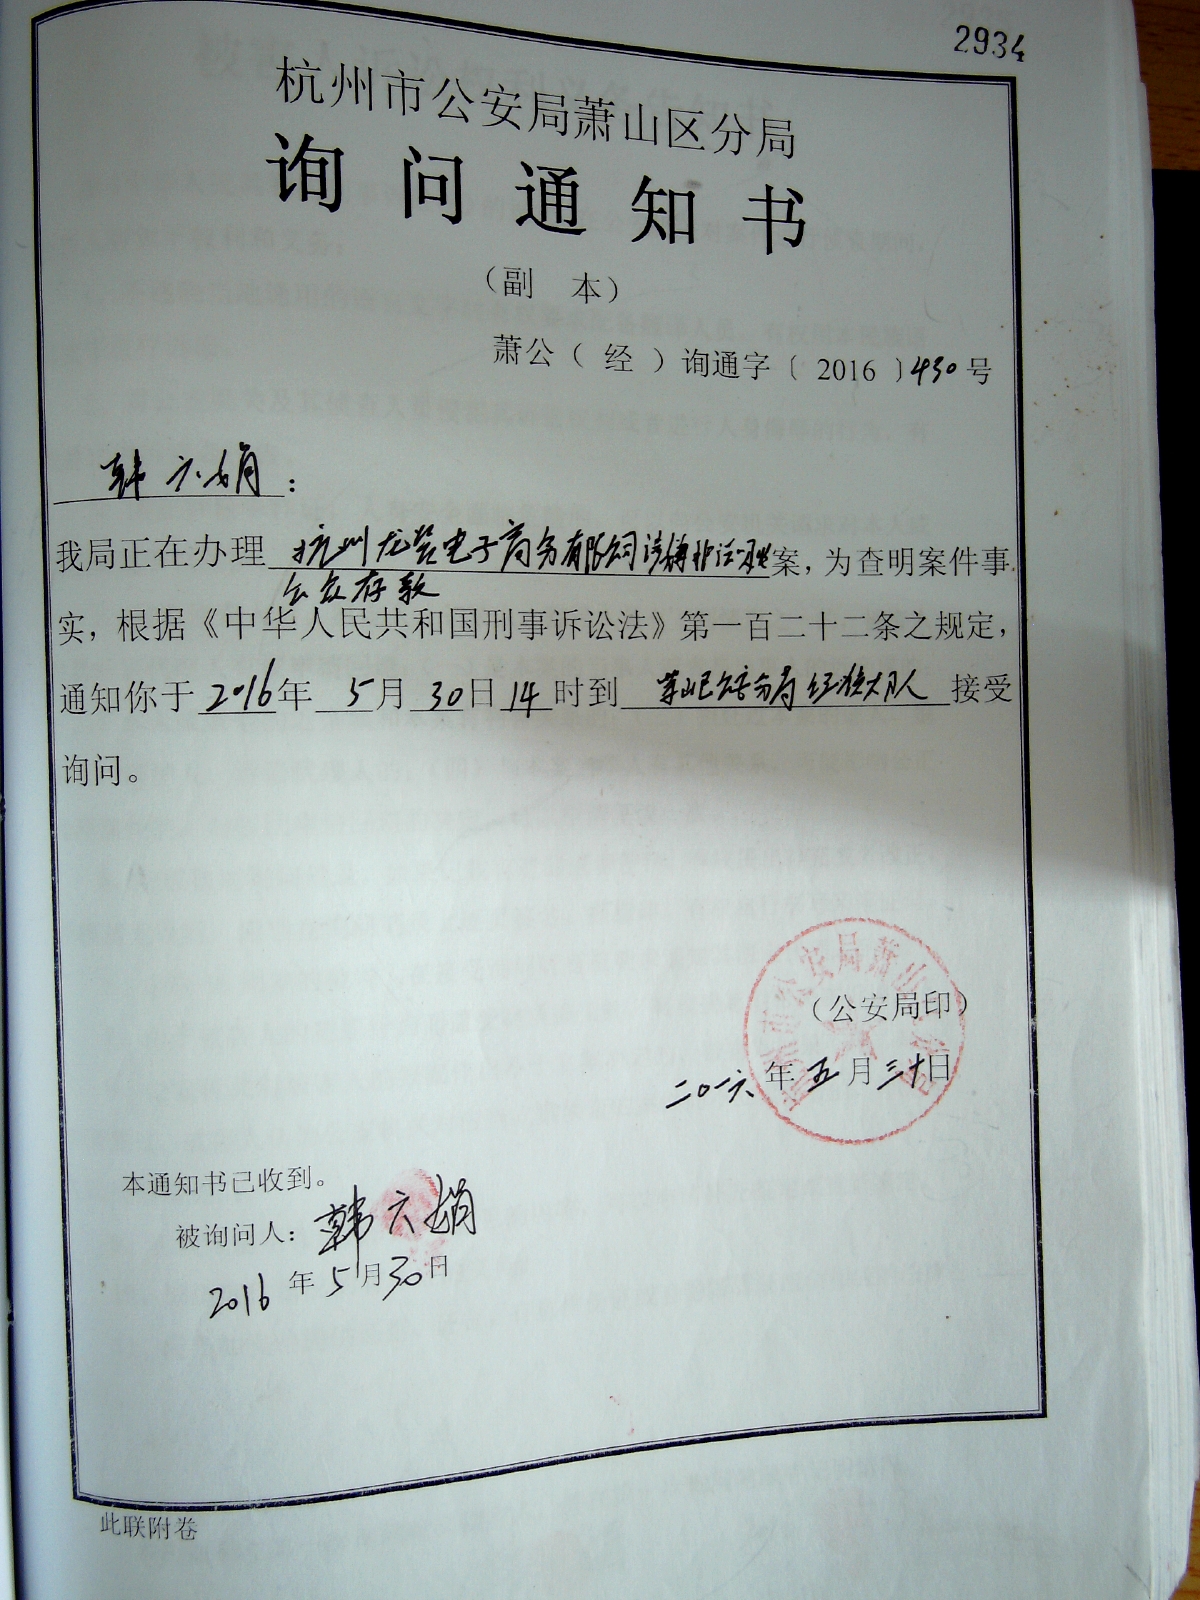 2934
杭州市公安局萧山区分局
询问通知书
（副 本）
萧公（经）询通字〔2016〕430号
韩六娟：
我局正在办理杭州龙炎电子商务有限公司涉嫌非法吸收案，为查明案件事
公众存款
实，根据《中华人民共和国刑事诉讼法》第一百二十二条之规定，
通知你于2016年5月30日14时到萧山区公安分局经侦大队接受
询问。
（公安局印）
二〇一六年五月三十日
本通知书已收到。
被询问人：韩六娟
2016年5月30日
此联附卷